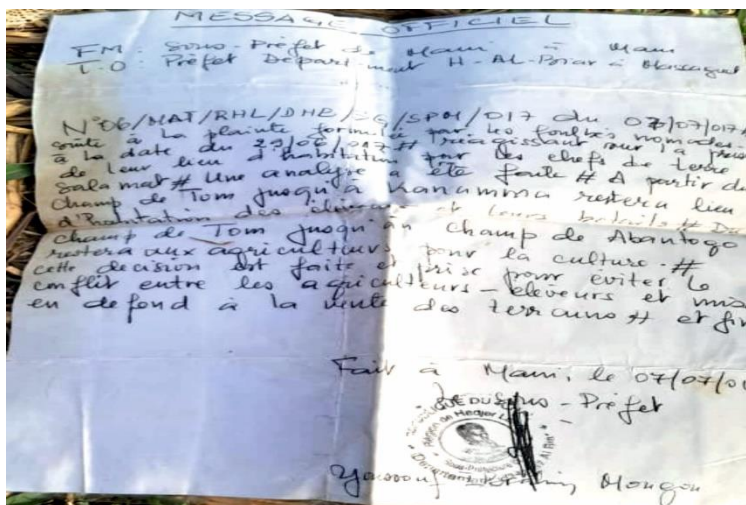 MESSAGE OFFICIEL
FM : Sous-Préfet de Mani à Mani
T.O : Préfet Département H-AL-Biar à Massaguet
N°06/MAT/RHL/DHB/SG/SPM/017 du 07/07/017#
suite à la plainte formulée par les foulbés nomades
à la date du 29/06/017 # réagissant sur la
de leur lieu d'habitation par les chefs de terre
Salamat # Une analyse a été faite # A partir de
champ de Tom jusqu'à Kanumma restera lieu
d'habitation des éleveurs et leurs bétails # Du
champ de Tom jusqu'au champ de Abantogo
restera aux agriculteurs pour la culture. #
cette decision est faite et prise pour éviter le
conflit entre les agriculteurs - éleveurs et mis
en defend à la vente des terrains # et fin
Fait à Mani, le 07/07/01
Sous-Préfet
Youssouf Mongou